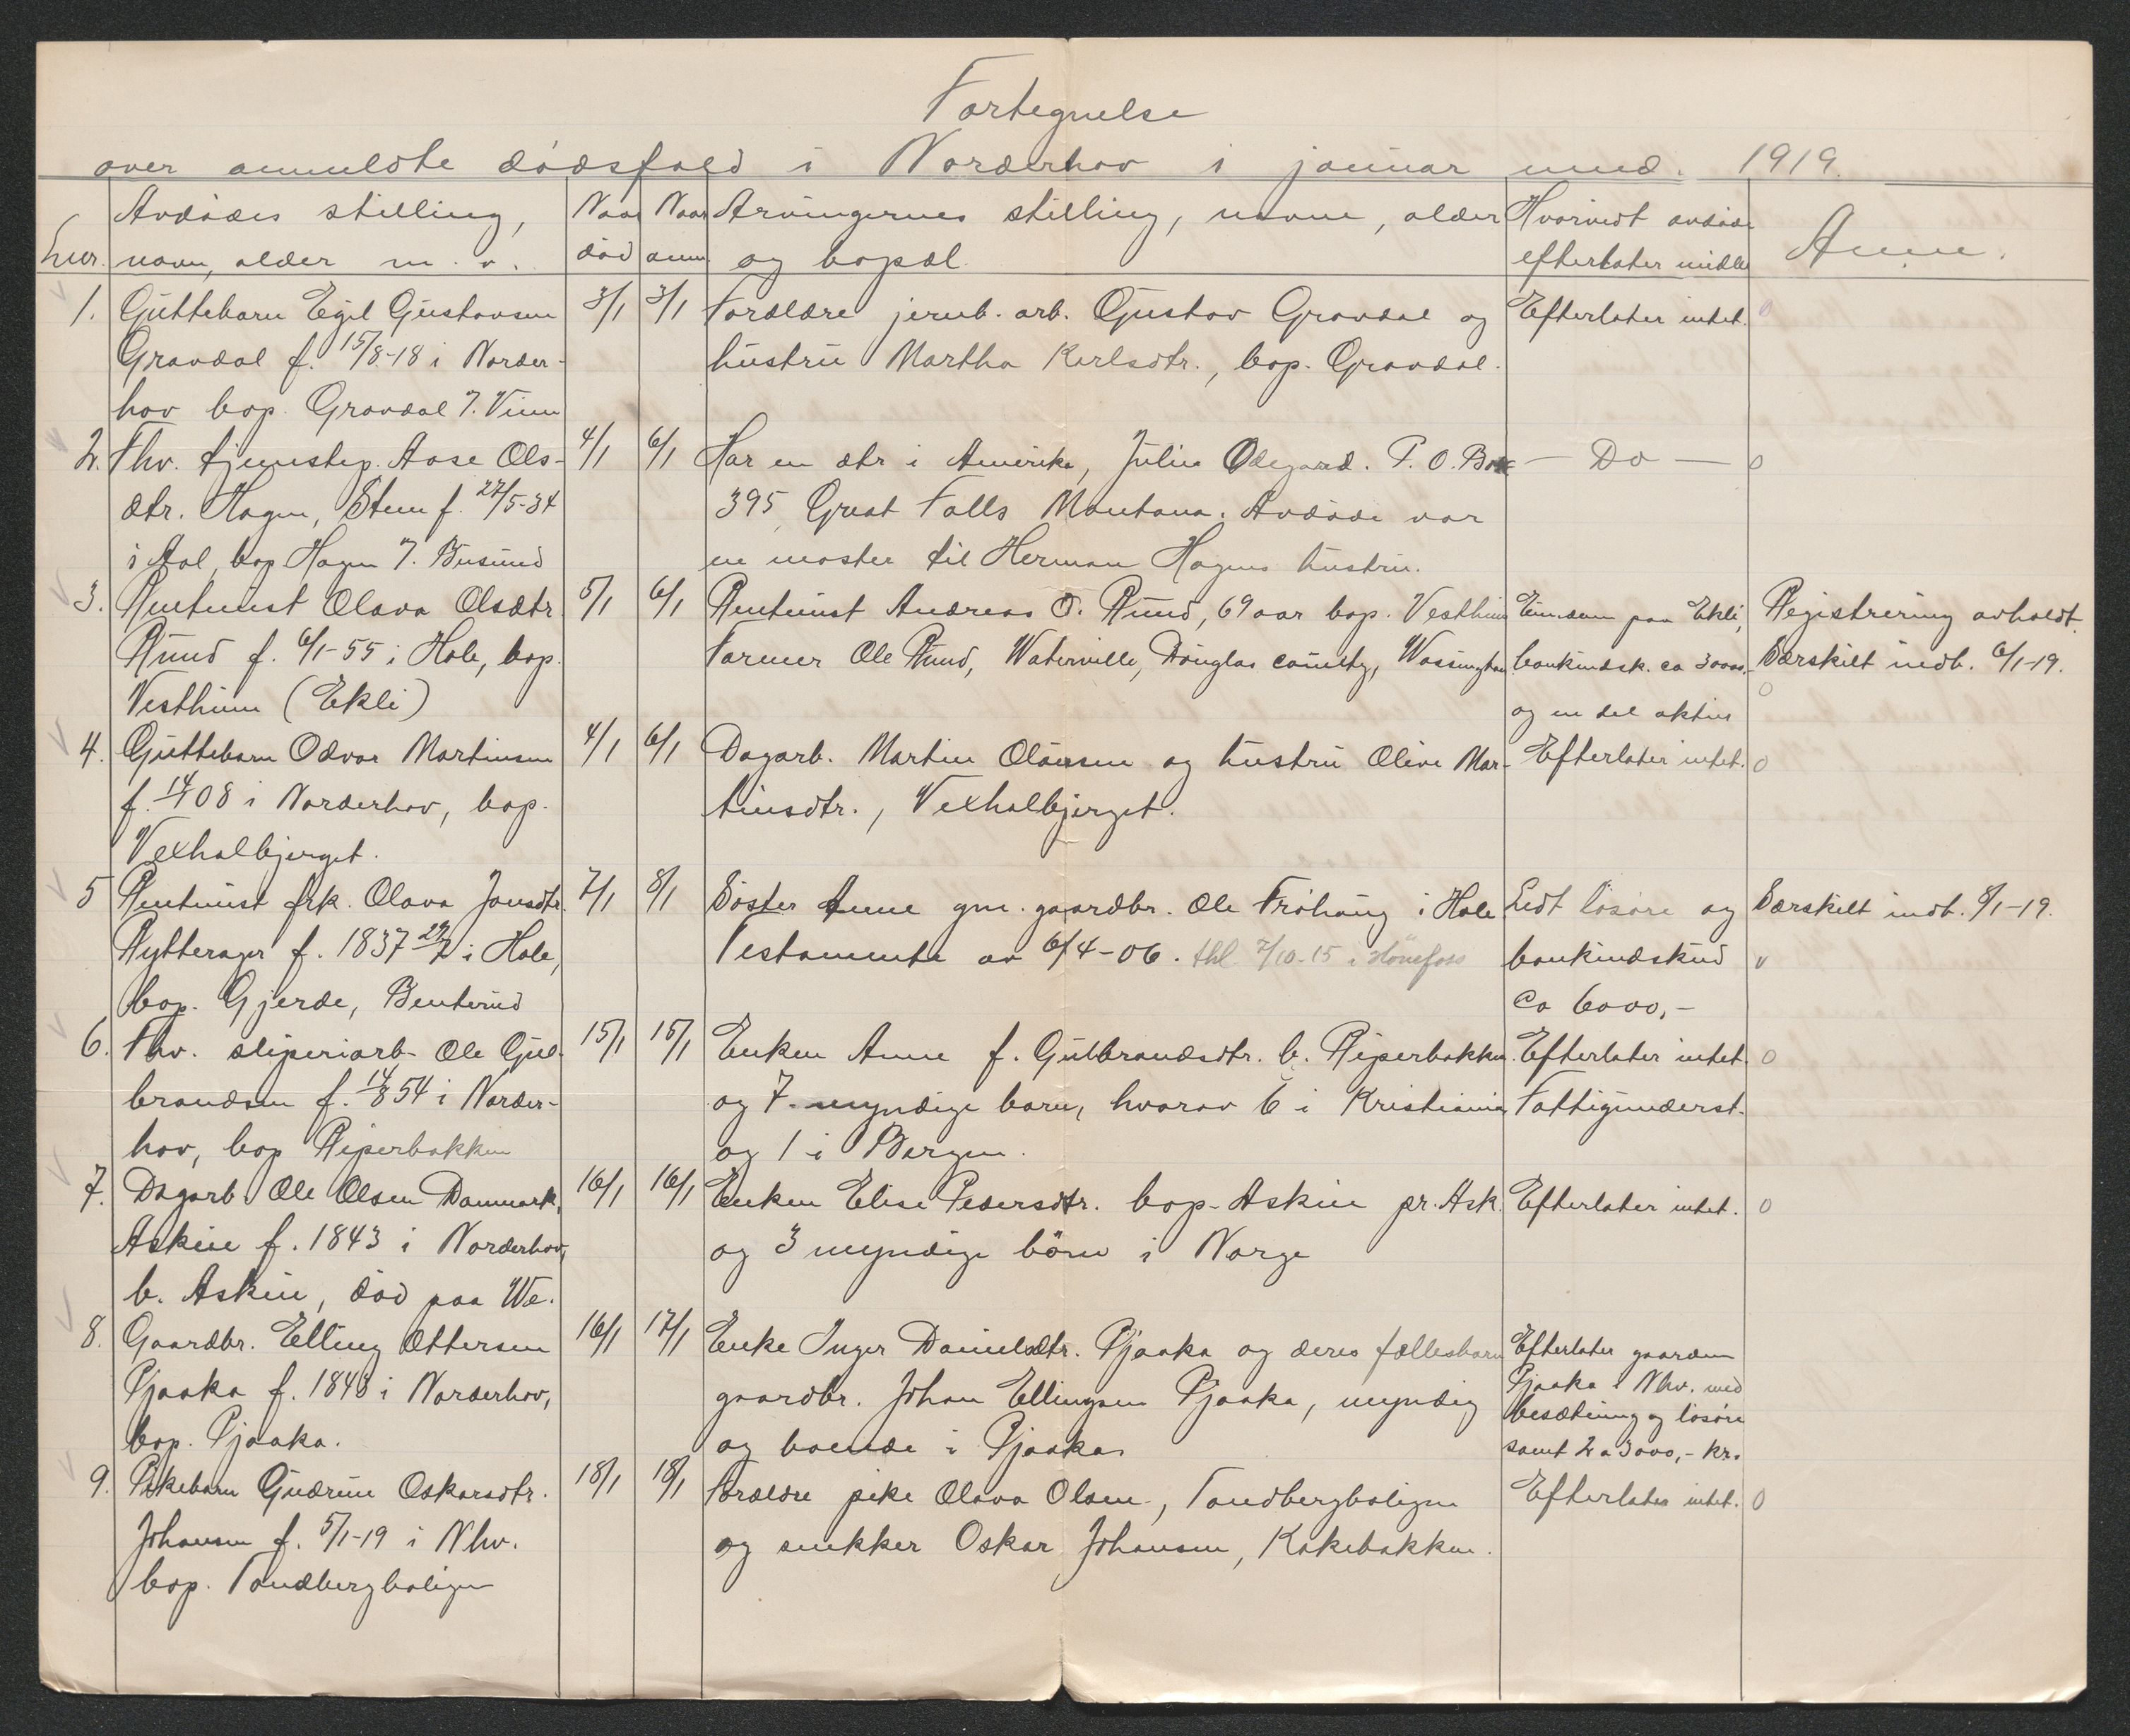 Fortegnelse
over anmeldte dødsfald i Norderhov i januar mnd. 1919.
Lnr. Avdødes stilling, navn, alder m. v.
Naar død
Naar anm.
Arvingernes stilling, navne, alder og bopæl
Hvorvidt avdøde efterlater midler
Anm.
1. Guttebarn Egil Gustavsen
Gravdal f. 15/8-18 i Norder-
hov bop. Gravdal p. Vium
3/1 3/1
Forældre jernb. arb. Gustav Gravdal og
hustru Martha Karlsdtr., bop. Gravdal.
Efterlater intet. 0
2. Fhv. tjenestep. Aase Ols-
dtr. Hagen, Steen f. 27/5-34
i Aal, bop Hagen p. Busund
4/1 6/1
Har en dtr i Amerika, Julia Ødegard. P. O. Box
395 Great Falls Montana. Avdøde var
en moster til Herman Hagens hustru.
— Do — 0
3. Rentenist Olava Olsdtr.
Rund f. 6/1-55 i Hole, bop.
Vesthum (Ekli)
5/1 6/1
Rentenist Andreas O. Rund, 69 aar bop. Vesthum
Farmer Ole Rund, Waterville, Douglas county, Wassington
Eiendom paa Ekli,
bankindsk. ca 3000.-
og en del aktier
Registrering avholdt.
Særskilt indb. 6/1-19.
0
4. Guttebarn Odvar Martinsen
f. 14/1 08 i Norderhov, bop.
Vexhalbjerget.
4/1 6/1
Dagarb. Martin Olausen og hustru Oline Mar-
tinsdtr., Vexhalbjerget.
Efterlater intet. 0
5 Rentenist frk. Olava Jonsdtr.
Rytterager f. 1837 29/7 i Hole,
bop. Gjerde, Benterud
7/1 8/1
Søster Anne gm. gaardbr. Ole Frøhaug i Hole
Testamente av 6/4-06. thl 7/10-15 i Hönefoss
Lidt løsøre og
bankindskud
ca 6000,-
Særskilt indb. 8/1-19.
v
6. Fhv. sliperiarb. Ole Gul-
brandsen f. 14/8 54 i Norder-
hov, bop Riperbakken
15/1 15/1
Enken Anne f. Gulbrandsdtr. b. Riperbakken.
og 7 myndige barn, hvorav 6 i Kristiania
og 1 i Bergen.
Efterlater intet. 0
Fattigunderst.
7. Dagarb. Ole Olsen Danmark,
Askeie f. 1843 i Norderhov,
b. Askeie, død paa We.
16/1 16/1
Enken Elise Pedersdtr. bop. Askeie pr. Ask.
og 3 myndige börn i Norge
Efterlater intet. 0
8. Gaardbr. Elling Ottersen
Pjaaka f. 1843 i Norderhov,
bop. Pjaaka.
16/1 17/1
Enke Inger Danielsdtr. Pjaaka og deres fællesbarn
gaardbr. Johan Ellingsen Pjaaka, myndig
og boende i Pjaaka.
Efterlater gaarden
Pjaaka i Nhv. med
besætning og løsøre
samt 2 a 3000,- kr.
9. Pikebarn Gudrun Oskarsdtr.
Johansen f. 5/1-19 i Nhv.
bop. Tandbergboligen
18/1 18/1
Forældre pike Olava Olsen, Tandbergboligen
og snekker Oskar Johansen, Kakebakken.
Efterlates intet. 0